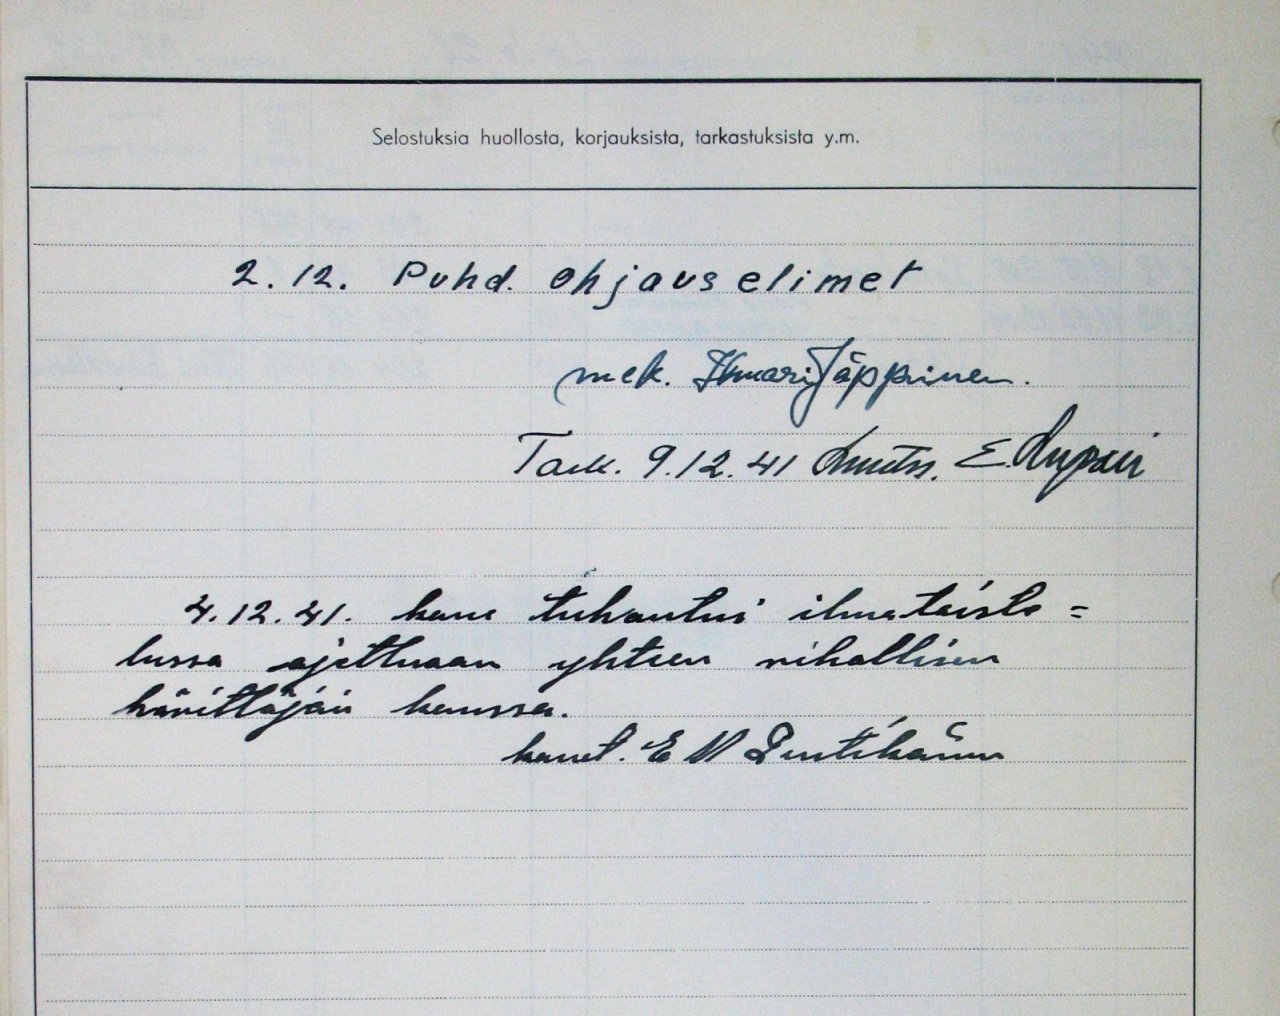 Selostuksia huollosta, korjauksista, tarkastuksista y.m.
2.12. Puhd. ohjauselimet
mek. Ilmari Jäppinen.
Tark. 9.12.41 E.
4.12.41. kone tuhoutui ilmataiste=
lussa ajettuaan yhteen vihollisen
hävittäjän kanssa.
E V Pentikäinen